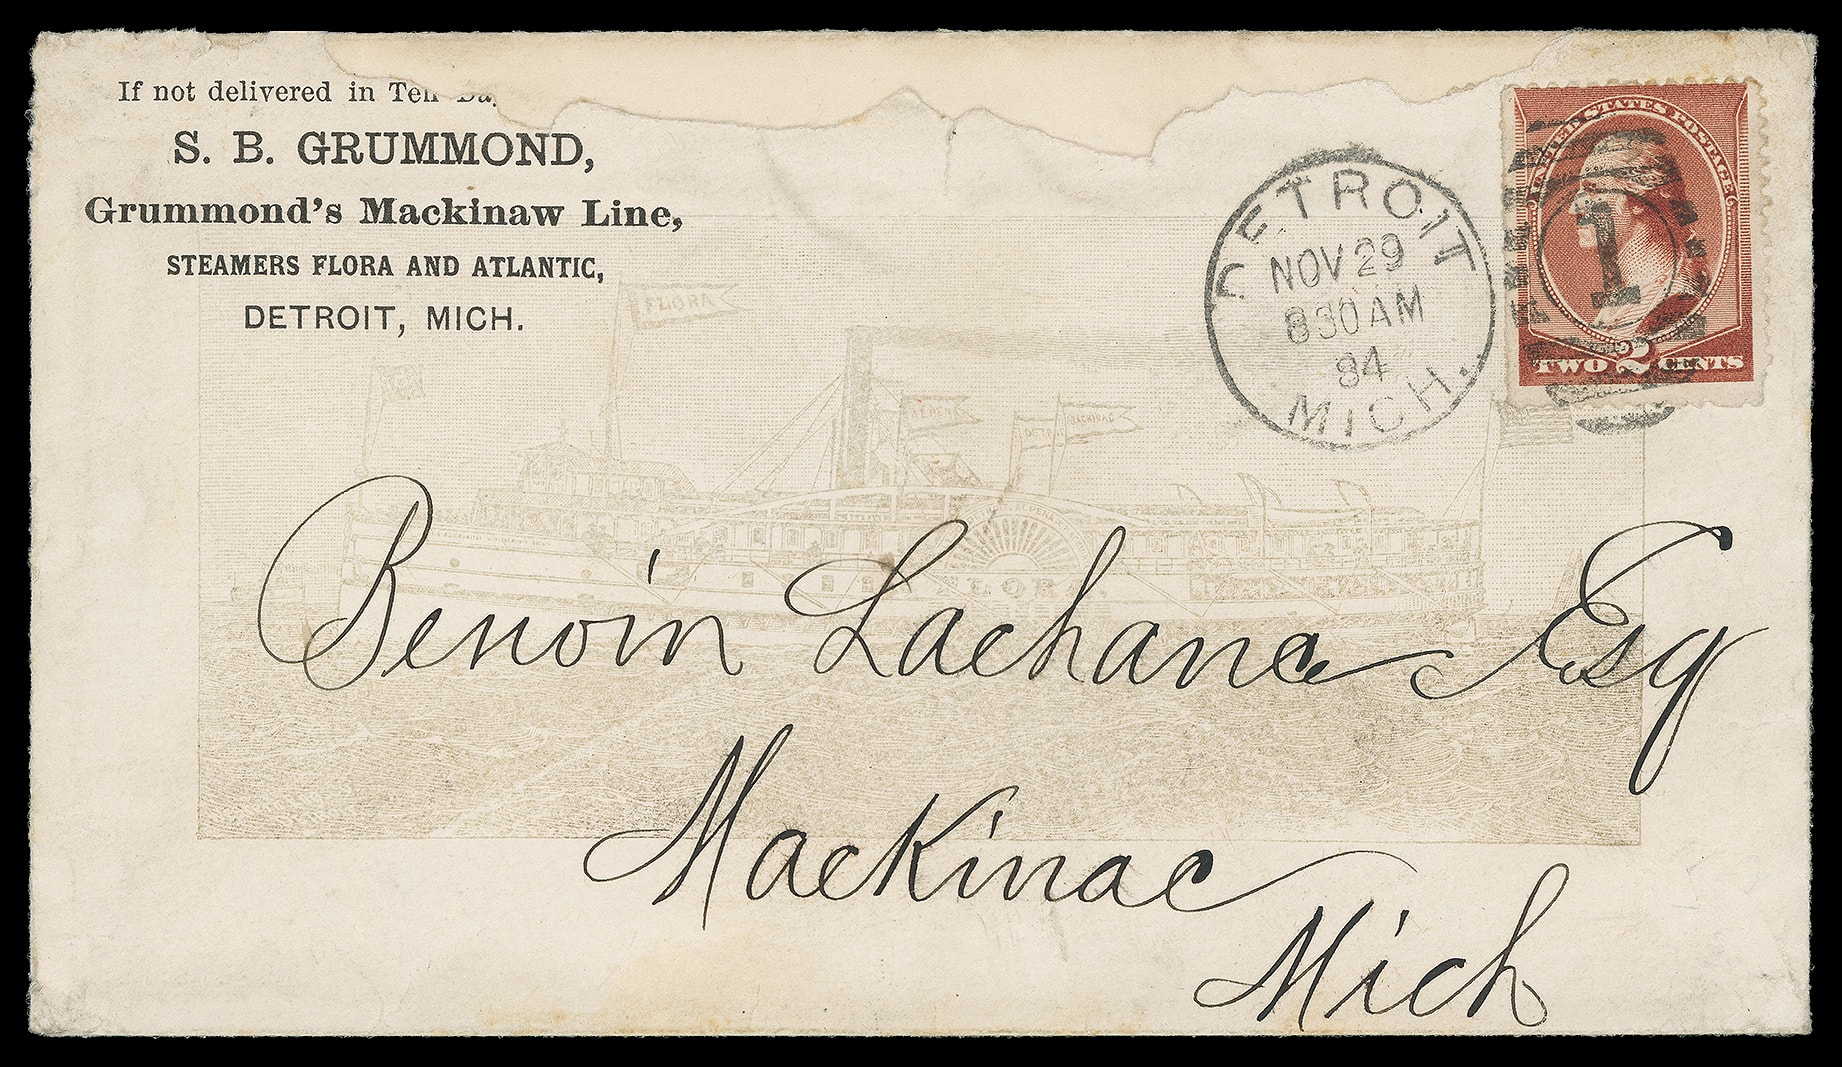 If not delivered in Ten Da
S. B. GRUMMOND,
Grummond's Mackinaw Line,
STEAMERS FLORA AND ATLANTIC,
DETROIT, MICH.
DETROIT
NOV 29
830AM
84
MICH.
UNITED STATES POSTAGE
1
TWO 2 CENTS
FLORA
MACKINAC
FLORA
Benoin Lachance Esq
Mackinac
Mich